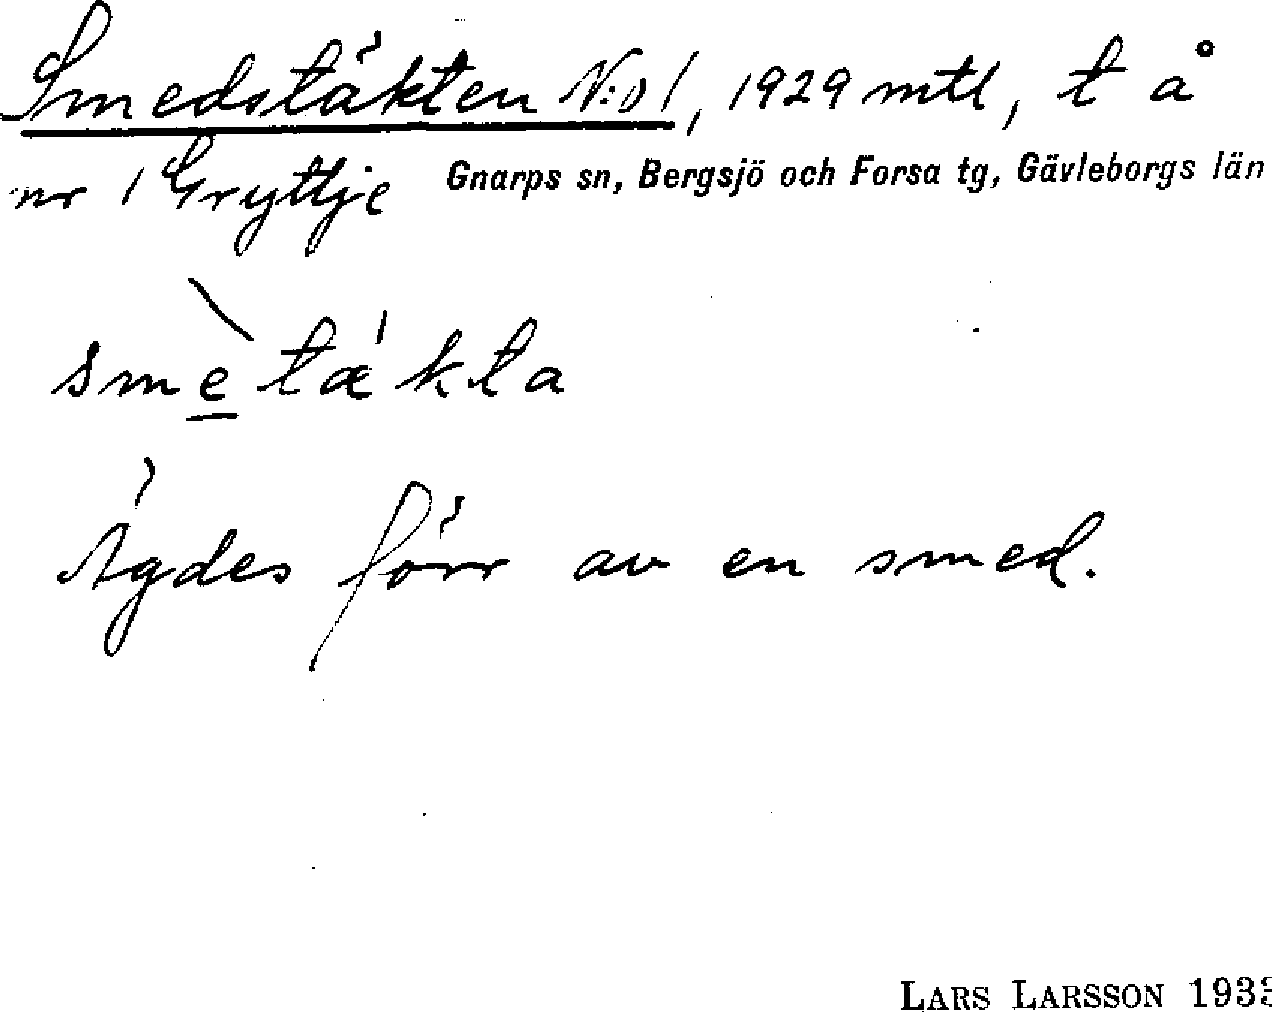 Smedstäkten N:o 1, 1929 mtl, t å
nr 1 Gryttje Gnarps sn, Bergsjö och Forsa tg, Gävleborgs län
smè̠tǽkta
Ägdes förr av en smed.
LARS LARSSON 1933